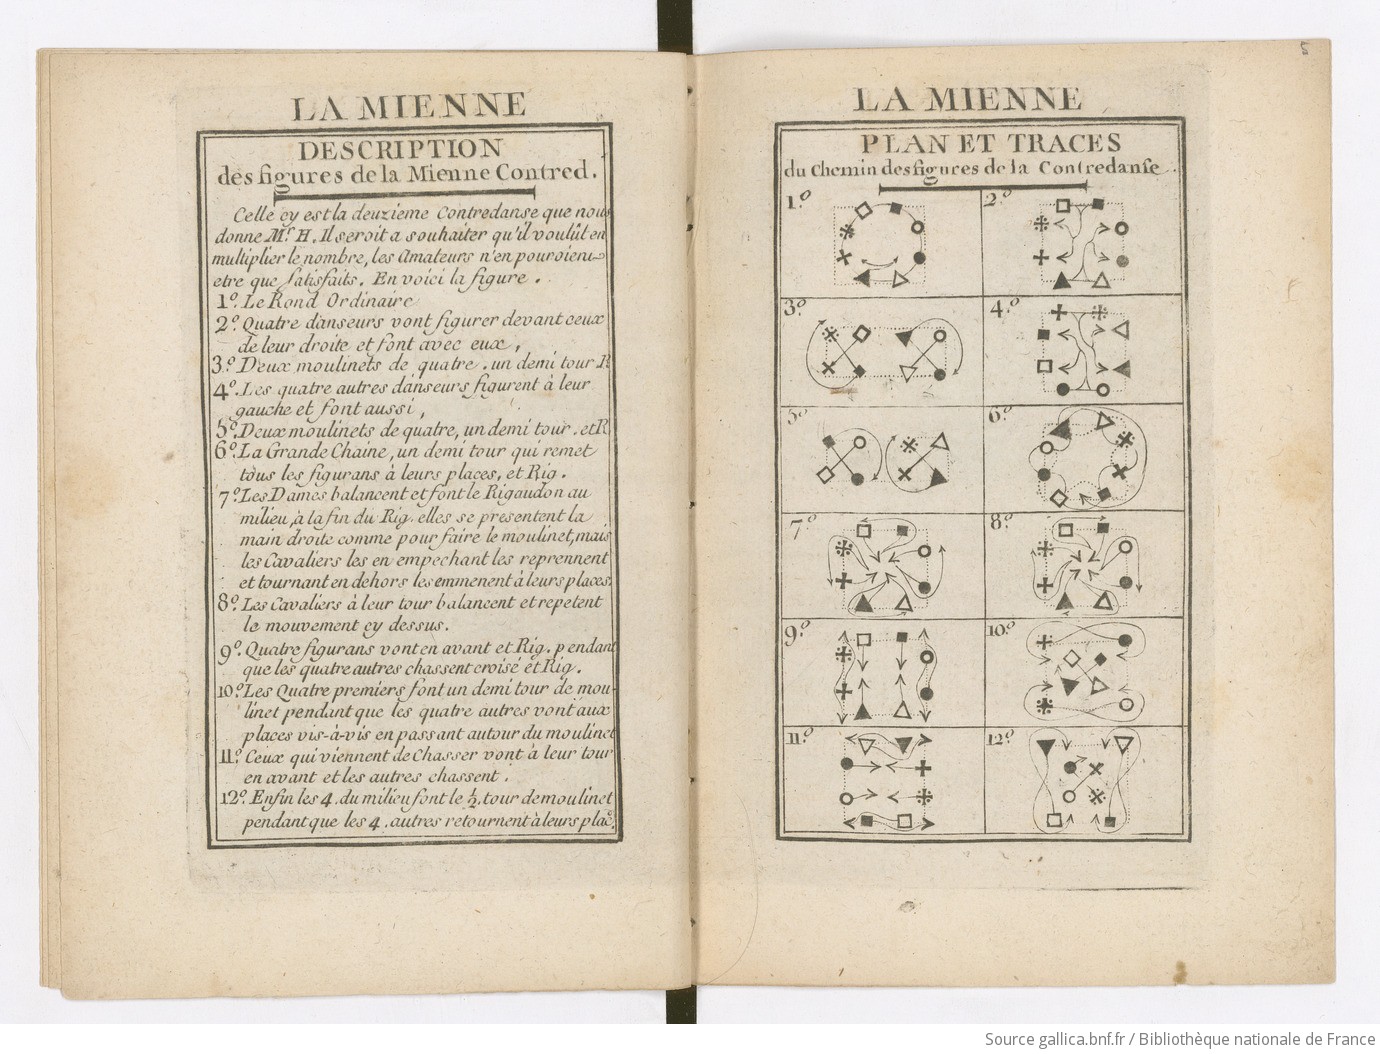 LA MIENNE
DESCRIPTION
des figures de la Mienne Contred.
Celle cy est la deuxieme Contredanse que nous
donne Mr. H. Il seroit a souhaiter qu'il voulût en
multiplier le nombre, les Amateurs n'en pouroient
etre que satisfaits. En voici la figure.
1º. Le Rond Ordinaire
2º. Quatre danseurs vont figurer devant ceux
de leur droite et font avec eux,
3.º Deux moulinets de quatre. un demi tour R
4º. Les quatre autres danseurs figurent à leur
gauche et font aussi,
5º. Deux moulinets de quatre, un demi tour. et R
6º. La Grande Chaine, un demi tour qui remet
tous les figurans à leurs places, et Rig.
7º. Les Dames balancent et font le Rigaudon au
milieu, à la fin du Rig. elles se presentent la
main droite comme pour faire le moulinet, mais
les Cavaliers les en empechant les reprennent
et tournant en dehors les emmenent à leurs places.
8º. Les Cavaliers à leur tour balancent et repetent
le mouvement cy dessus.
9º. Quatre figurans vont en avant et Rig. pendant
que les quatre autres chassent croisé et Rig.
10º. Les Quatre premiers font un demi tour de mou-
linet pendant que les quatre autres vont aux
places vis-à-vis en passant autour du moulinet
11º. Ceux qui viennent de Chasser vont à leur tour
en avant et les autres chassent.
12º. Enfin les 4. du milieu font le ½. tour de moulinet
pendant que les 4. autres retournent à leurs plac.
5
LA MIENNE
PLAN ET TRACES
du Chemin des figures de la Contredanse.
1.º 2.º
3.º 4.º
5.º 6.º
7.º 8.º
9.º 10.º
11.º 12.º
Source gallica.bnf.fr / Bibliothèque nationale de France